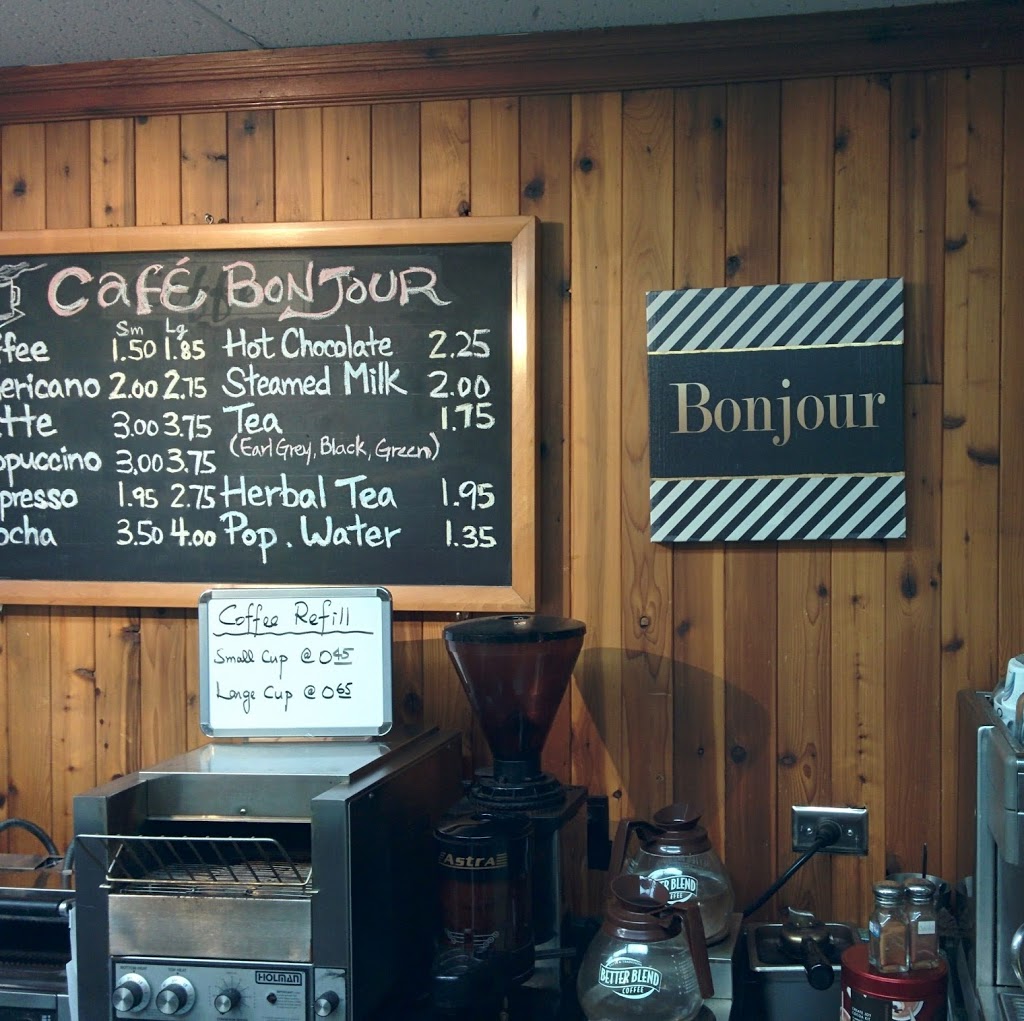 Café BONJOUR
Sm Lg
ffee 1.50 1.85
ericano 2.00 2.75
tte 3.00 3.75
ppuccino 3.00 3.75
presso 1.95 2.75
ocha 3.50 4.00
Hot Chocolate 2.25
Steamed Milk 2.00
Tea 1.75
(Earl Grey, Black, Green)
Herbal Tea 1.95
Pop. Water 1.35
Bonjour
Coffee Refill
Small Cup @ 0 45
Large Cup @ 0 65
ASTRA
HOLMAN
TER BLEND
FFEE
BETTER BLEND
COFFEE